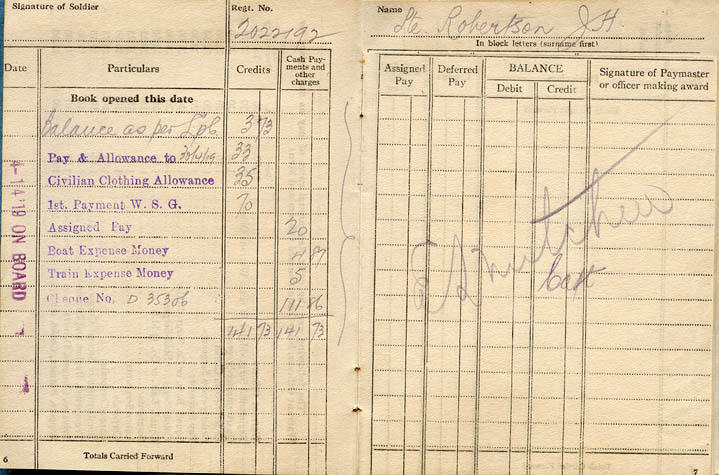 Signature of Soldier
Regt. No.
2022192
Date
Particulars
Credits
Cash Pay-
ments and
other
charges
Book opened this date
Balance as per Lpb. 3 73
Pay & Allowance to 33
Civilian Clothing Allowance 35
1st. Payment W. S. G. 70
Assigned Pay 20
Boat Expense Money 4 87
Train Expense Money 5
Cheque No. D 35306 111 86
141 73 141 73
4-14'19 ON BOARD
Totals Carried Forward
6
Name
Pte. Robertson J.H.
In block letters (surname first)
Assigned
Pay
Deferred
Pay
BALANCE
Debit
Credit
Signature of Paymaster
or officer making award
Capt
7